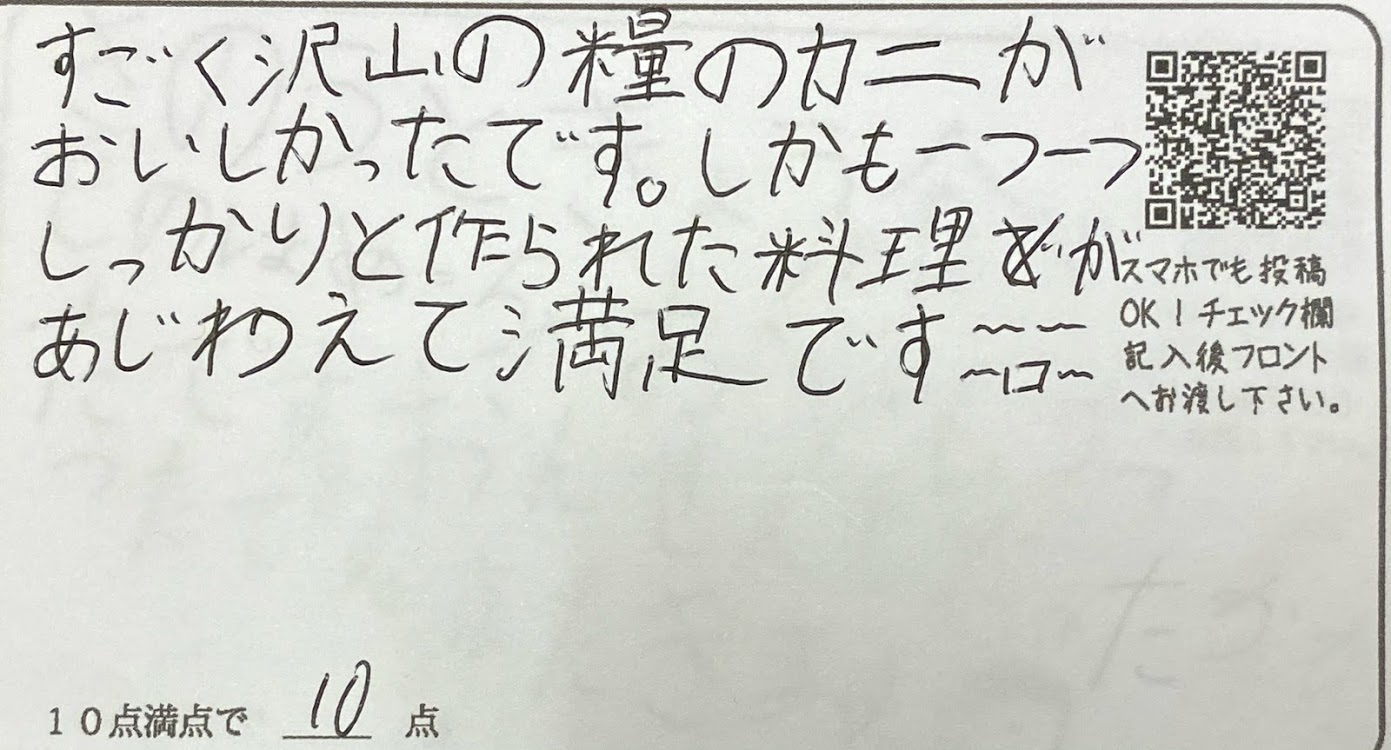 すごく沢山の糧のカニが
おいしかったです。しかも一つ一つ
しっかりと作られた料理が
あじわえて満足です
スマホでも投稿
OK！チェック欄
記入後フロント
へお渡し下さい。
10点満点で 10 点